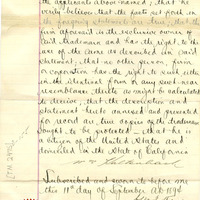 the applicants above named; that he
verily believes that the facts set forth in
the foregoing statement are true; that the
firm aforesaid is the exclusive owner of
said trademark and has the right to the
use of the same as described in said
statement; that no other person, firm
or corporation has the right to such use
in the identical form or any such near
resemblance thereto as might be calculated
to deceive; that the description and
statement hereto annexed and presented
for record are true copies of the trademark
sought to be protected; that he is
a citizen of the United States and
domiciled in the State of California
Subscribed and sworn to before me
this 11th day of September A.D. 1894